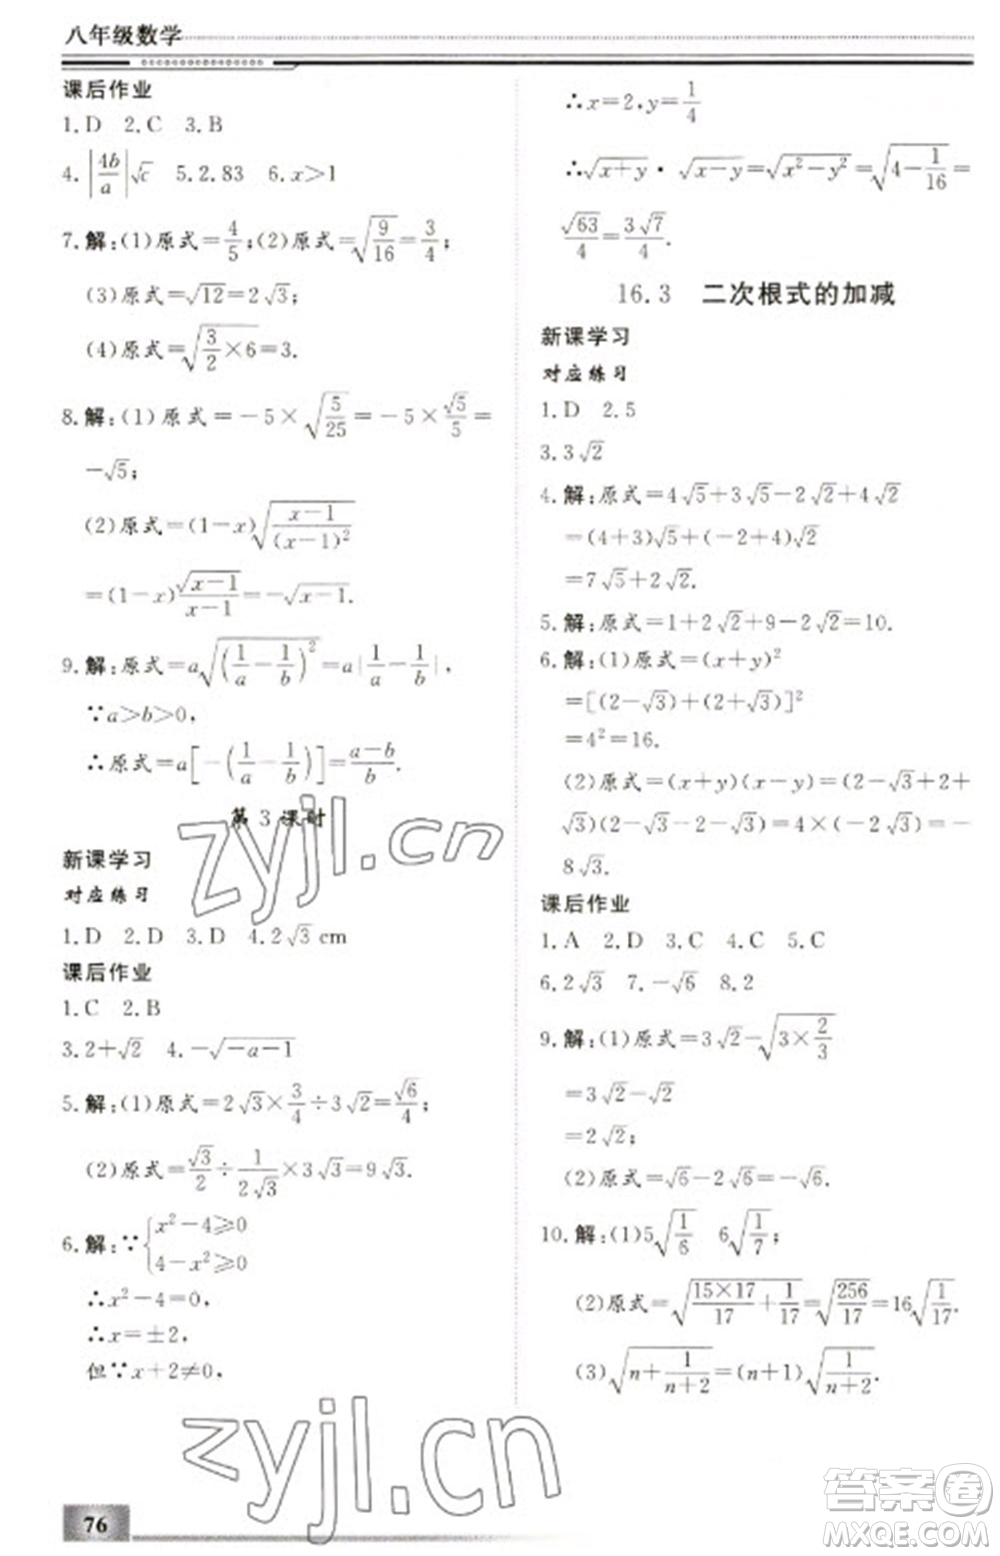 八年级数学
课后作业
1.D 2.C 3.B
4.|4b/a|√c 5.2.83 6.x>1
7.解:(1)原式=4/5;(2)原式=√(9/16)=3/4;
(3)原式=√12=2√3;
(4)原式=√(3/2×6)=3.
8.解:(1)原式=-5×√(5/25)=-5×√5/5=
-√5;
(2)原式=(1-x)√((x-1)/(x-1)²)
=(1-x)√(x-1)/(x-1)=-√(x-1).
9.解:原式=a√((1/a-1/b)²)=a|1/a-1/b|,
∵a>b>0,
∴原式=a[-(1/a-1/b)]=(a-b)/b.
第3课时
新课学习
对应练习
1.D 2.D 3.D 4.2√3 cm
课后作业
1.C 2.B
3.2+√2 4.-√(-a-1)
5.解:(1)原式=2√3×3/4÷3√2=√6/4;
(2)原式=√3/2÷1/(2√3)×3√3=9√3.
6.解:∵{x²-4≥0
4-x²≥0
∴x²-4=0,
∴x=±2,
但∵x+2≠0,
76
∴x=2,y=1/4
∴√(x+y)·√(x-y)=√(x²-y²)=√(4-1/16)=
√63/4=3√7/4.
16.3 二次根式的加减
新课学习
对应练习
1.D 2.5
3.3√2
4.解:原式=4√5+3√5-2√2+4√2
=(4+3)√5+(-2+4)√2
=7√5+2√2.
5.解:原式=1+2√2+9-2√2=10.
6.解:(1)原式=(x+y)²
=[(2-√3)+(2+√3)]²
=4²=16.
(2)原式=(x+y)(x-y)=(2-√3+2+
√3)(2-√3-2-√3)=4×(-2√3)=-
8√3.
课后作业
1.A 2.D 3.C 4.C 5.C
6.2√3 7.-√6 8.2
9.解:(1)原式=3√2-√(3×2/3)
=3√2-√2
=2√2;
(2)原式=√6-2√6=-√6.
10.解:(1)5√(1/6) 6√(1/7);
(2)原式=√((15×17)/17+1/17)=√(256/17)=16√(1/17).
(3)√(n+1/(n+2))=(n+1)√(1/(n+2)).
zyjl.cn
zyjl.cn
答案圈
MXQE.COM